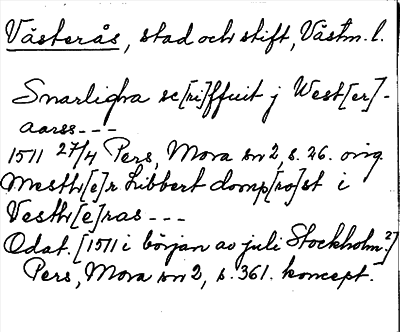 Västerås, stad och stift, Västm. l.
Snarligha sc[ri]ffuit j West[er]-
aarss---
1511 27/4 Pers, Mora nr 2, s. 26. orig.
Mesth[e]r Libbert domp[ro]st i
Vesth[e]ras ---
Odat. [1511 i början av juli Stockholm?]
Pers, Mora nr 2, s. 361. koncept.